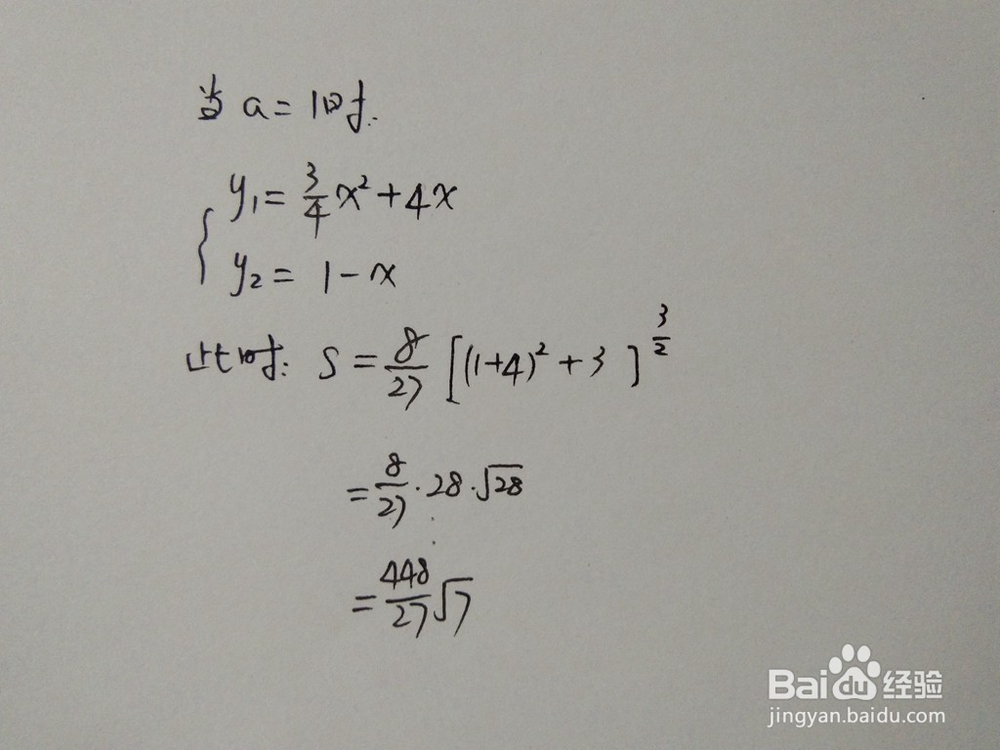 当 a = 1时.
y₁ = 3/4 x² + 4x
y₂ = 1 - x
此时: S = 8/27 [(1+4)² + 3]^(3/2)
= 8/27 · 28 · √28
= 448/27 √7
Baidu 经验
jingyan.baidu.com